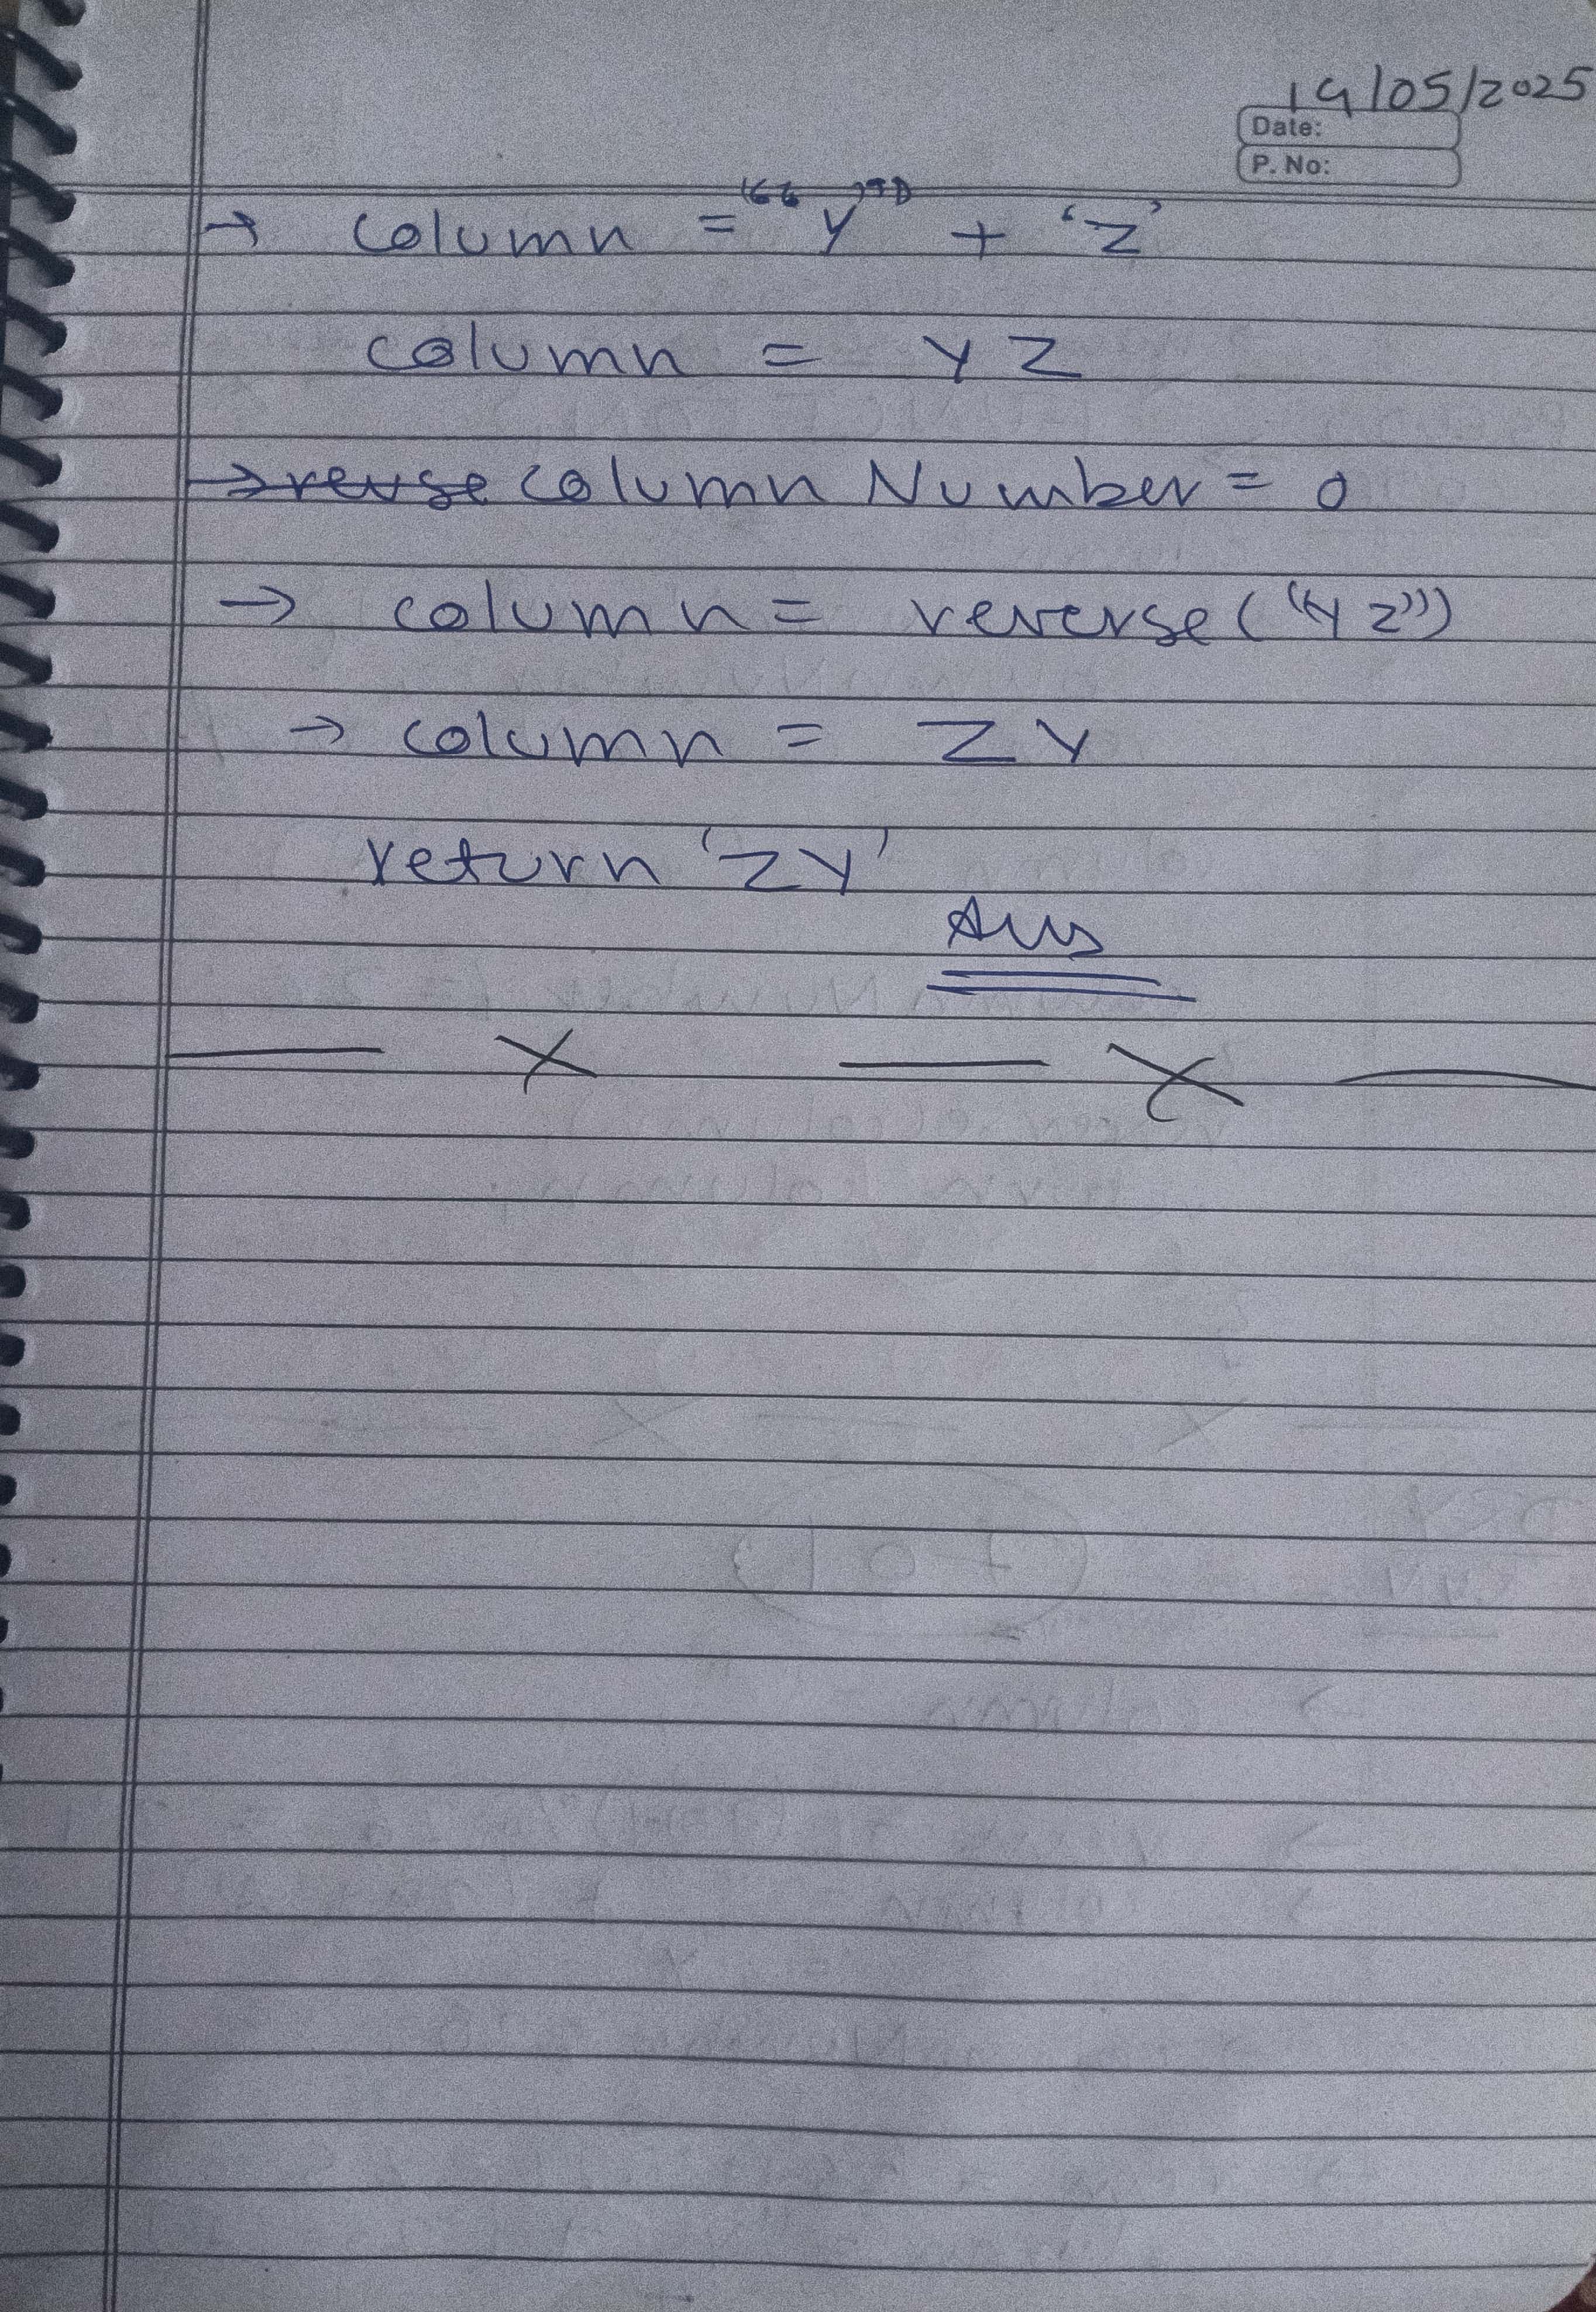 19/05/2025
Date:
P. No:
→ column = "Y" + 'Z'
column = YZ
→ column Number = 0
→ column = reverse("YZ")
→ column = ZY
return 'ZY'
Ans
— X — X —